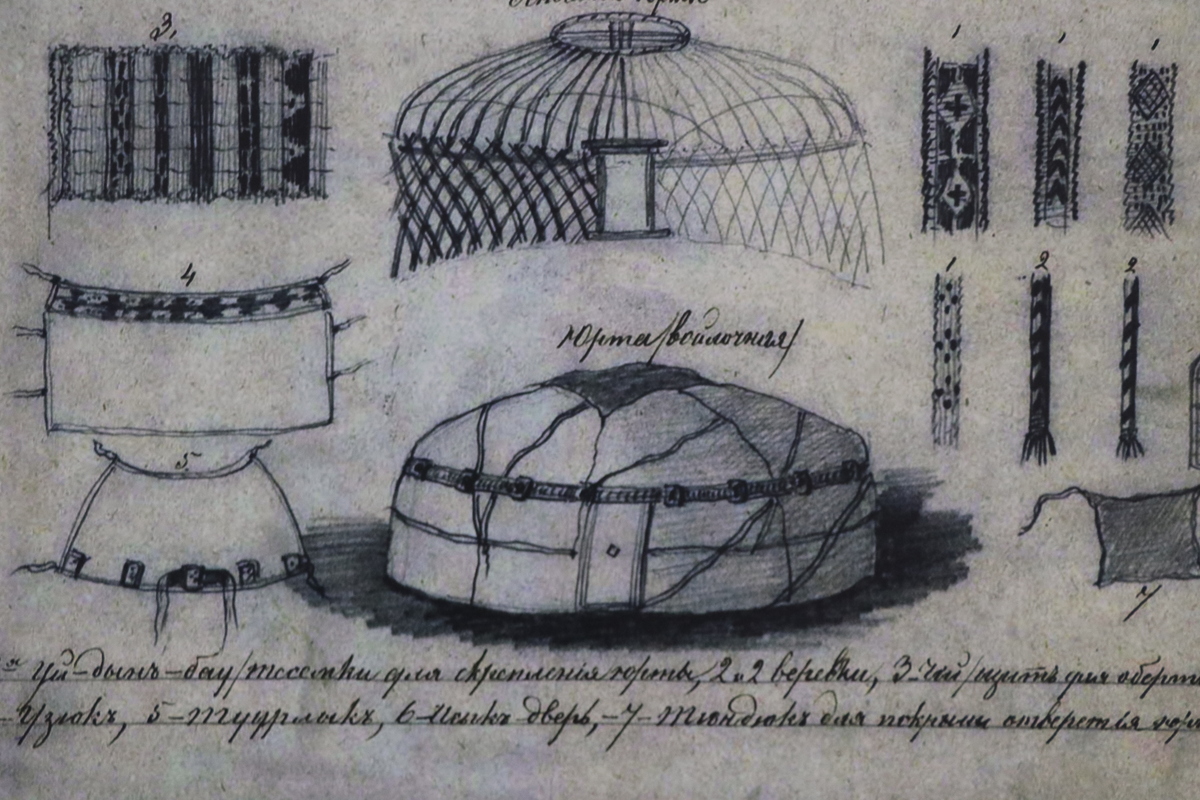 3,
1 1 1
4
1 2 2
Юрта /войлочная/
5.
7
Уй-дынъ-бау /тесемки для скрепленія юрты, 2 и 2 веревки, 3-Чій /щитъ для оберты
-Узюкъ, 5-Туурлыкъ, 6-Исыкъ дверь,-7-Тюндюкъ для покрыш отверстія юр